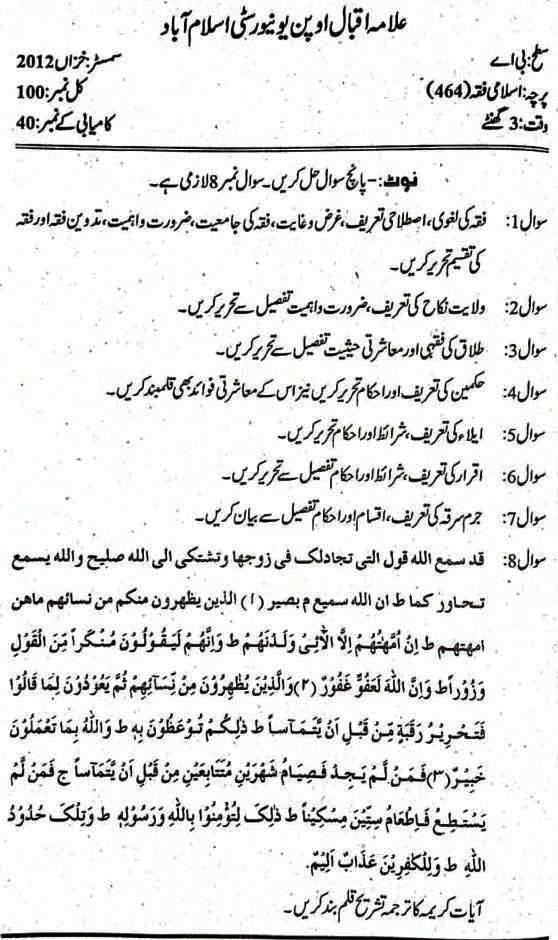 علامہ اقبال اوپن یونیورسٹی اسلام آباد
سطح: بی اے سمسٹر: خزاں 2012
پرچہ: اسلامی فقہ (464) کل نمبر: 100
وقت: 3 گھنٹے کامیابی کے نمبر: 40
نوٹ:- پانچ سوال حل کریں۔ سوال نمبر 8 لازمی ہے۔
سوال 1: فقہ کی لغوی، اصطلاحی تعریف، غرض و غایت، فقہ کی جامعیت، ضرورت و اہمیت، تدوین فقہ اور فقہ
کی تقسیم تحریر کریں۔
سوال 2: ولایت نکاح کی تعریف، ضرورت و اہمیت تفصیل سے تحریر کریں۔
سوال 3: طلاق کی فقہی اور معاشرتی حیثیت تفصیل سے تحریر کریں۔
سوال 4: حکمین کی تعریف اور احکام تحریر کریں نیز اس کے معاشرتی فوائد بھی قلمبند کریں۔
سوال 5: ایلاء کی تعریف، شرائط اور احکام تحریر کریں۔
سوال 6: اقرار کی تعریف، شرائط اور احکام تفصیل سے تحریر کریں۔
سوال 7: جرم سرقہ کی تعریف، اقسام اور احکام تفصیل سے بیان کریں۔
سوال 8: قد سمع الله قول التی تجادلک فی زوجها وتشتکی الی الله صلیح والله یسمع
تحاور کما ط ان الله سمیع م بصیر (۱) الذین یظهرون منکم من نسائهم ماهن
امهتهم ط إِنْ اُمَّهٰتُهُمْ اِلَّا الّٰاِئْی وَلَدْنَهُمْ ط وَاِنَّهُمْ لَیَقُوْلُوْنَ مُنْکَراً مِّنَ الْقَوْلِ
وَزُوْراً ط وَاِنَّ اللّٰهَ لَعَفُوٌّ غَفُوْرٌ (۲) وَالَّذِیْنَ یُظٰهِرُوْنَ مِنْ نِّسَآئِهِمْ ثُمَّ یَعُوْدُوْنَ لِمَا قَالُوْا
فَتَحْرِیْرُ رَقَبَةٍ مِّنْ قَبْلِ اَنْ یَّتَمَآسَّا ط ذٰلِکُمْ تُوْعَظُوْنَ بِهٖ ط وَاللّٰهُ بِمَا تَعْمَلُوْنَ
خَبِیْرٌ (۳) فَمَنْ لَّمْ یَجِدْ فَصِیَامُ شَهْرَیْنِ مُتَتَابِعَیْنِ مِنْ قَبْلِ اَنْ یَّتَمَآسَّا ج فَمَنْ لَّمْ
یَسْتَطِعْ فَاِطْعَامُ سِتِّیْنَ مِسْکِیْناً ط ذٰلِکَ لِتُؤْمِنُوْا بِاللّٰهِ وَرَسُوْلِهٖ ط وَتِلْکَ حُدُوْدُ
اللّٰهِ ط وَلِلْکٰفِرِیْنَ عَذَابٌ اَلِیْمٌ.
آیات کریمہ کا ترجمہ تشریح قلم بند کریں۔